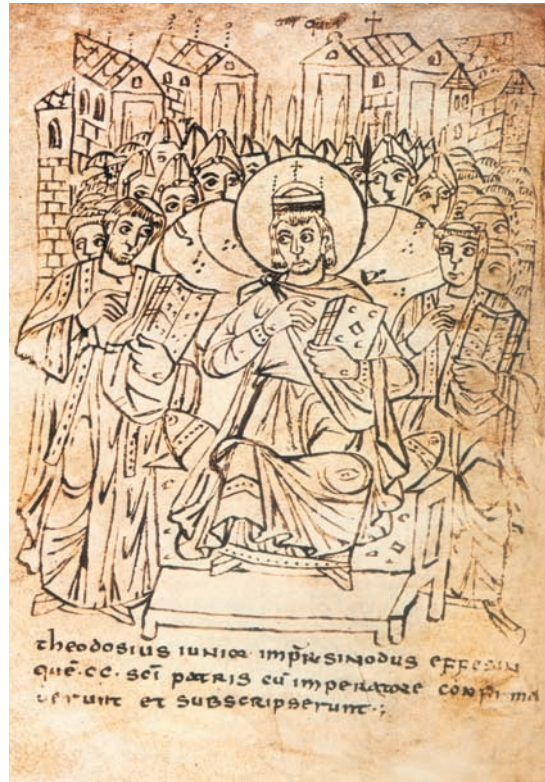 theodosius iunior imp̄r sinodus effesin
quē·cc·scī patris cū imperatore confirma
uerunt et subscripserunt·;